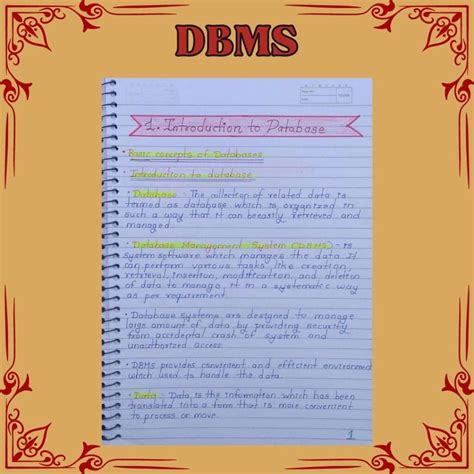 DBMS
1. Introduction to Database
• Basic concepts of Databases
• Introduction to database
• Database : The collection of related data is
termed as database which is organized in
such a way that it can be easily retrieved and
managed.
• Database Management System (DBMS) :- is
system software which manages the data. It
can perform various tasks like creation,
retrieval, insertion, modification, and deletion
of data to manage it in a systematic way
as per requirement.
• Database systems are designed to manage
large amount of data by providing security
from accidental crash of system and
unauthorized access.
• DBMS provides convinient and efficient environment
which used to handle the data.
• Data : Data is the information which has been
translated into a form that is more convenient
to process or move.
1